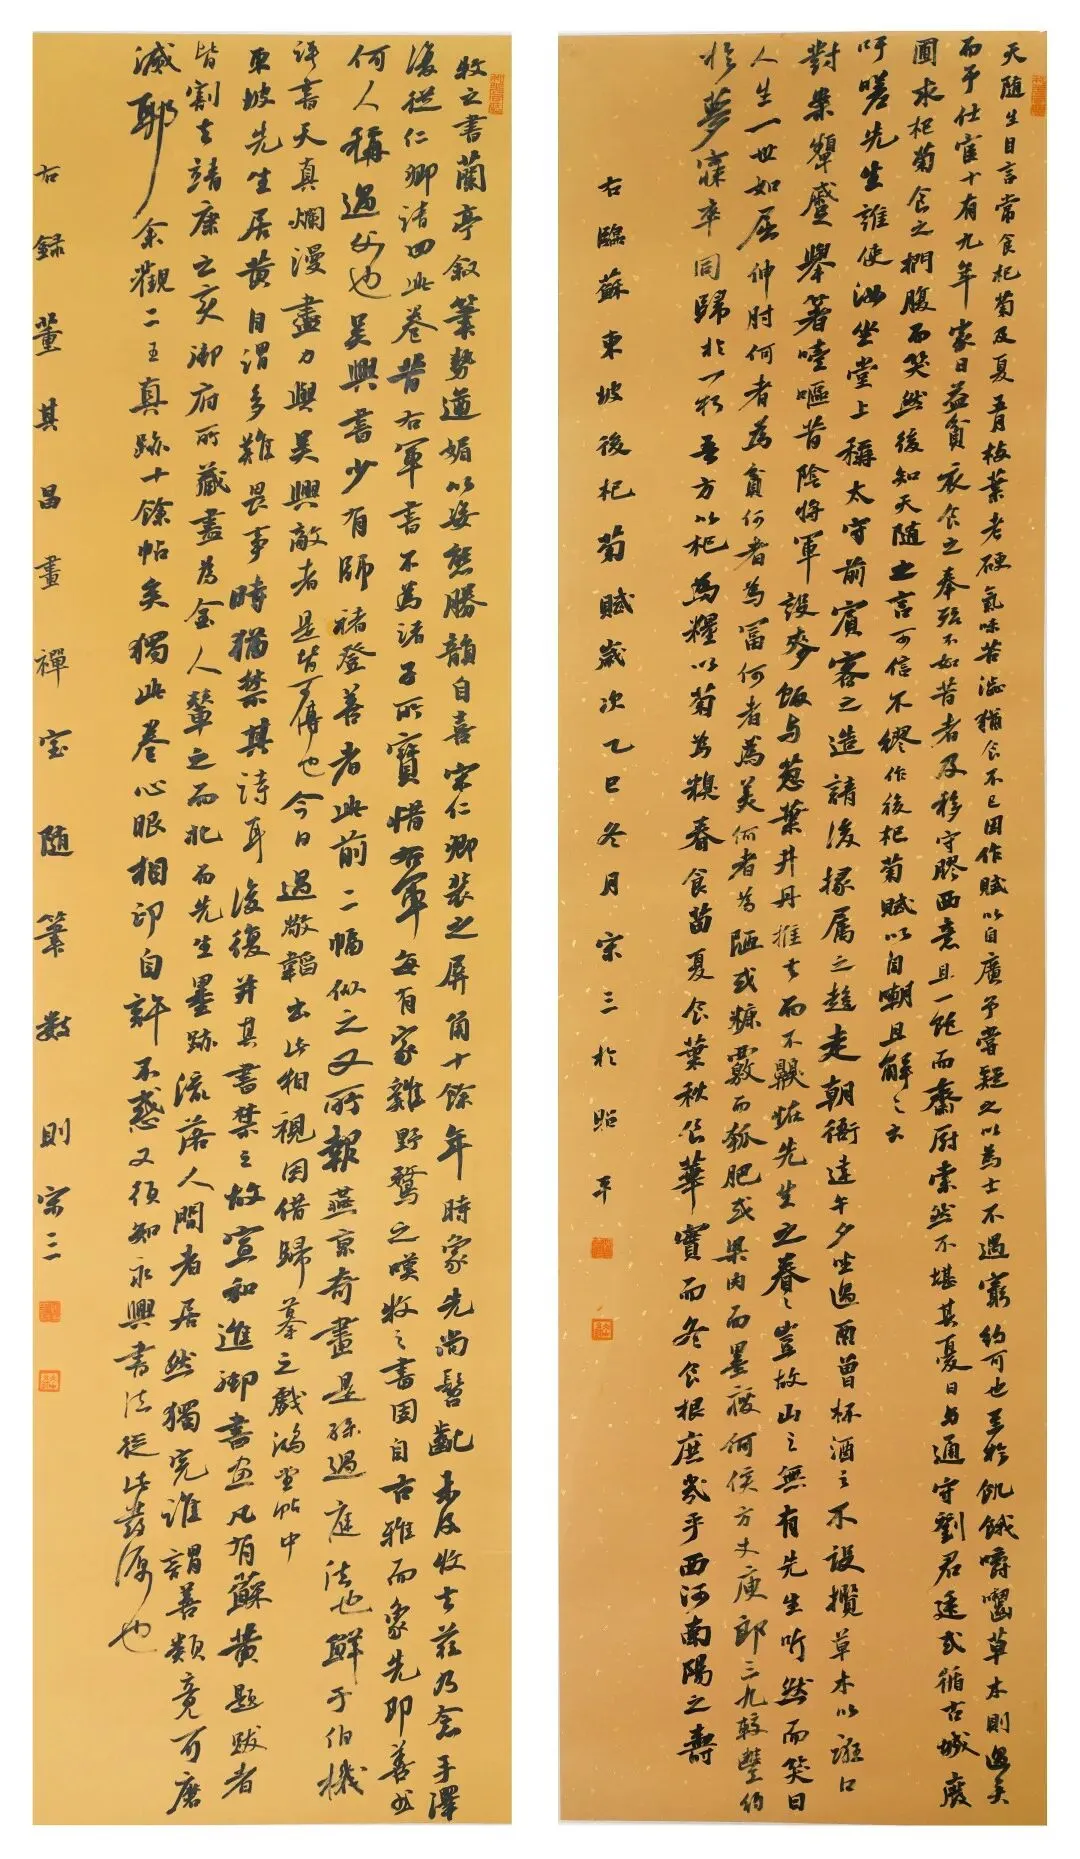 天随生自言常食杞菊及夏五月枝葉老硬氣味苦澀猶食不已因作賦以自廣予嘗疑之以為士不遇窮約可也至於飢餓嚼齧草木則過矣
而予仕宦十有九年家日益貧衣食之奉殆不如昔者及移守膠西意且一飽而齋厨索然不堪其憂日与通守劉君廷式循古城廢
圃求杞菊食之捫腹而笑然後知天随之言可信不繆作後杞菊賦以自嘲且解之云
吁嗟先生誰使汝坐堂上稱太守前賓客之造請後掾属之趨走朝衙達午夕坐過酉曾杯酒之不設攬草木以誑口
對案顰蹙舉箸噎嘔昔陰将軍設麥飯与葱葉井丹推去而不齅怪先生之眷眷豈故山之無有先生听然而笑曰
人生一世如屈伸肘何者為貧何者為冨何者為美何者為陋或糠覈而瓠肥或梁肉而墨瘦何侯方丈庾郎三九較豐約
於夢寐卒同歸於一朽吾方以杞為糧以菊為糗春食苗夏食葉秋食華實而冬食根庶幾乎西河南陽之壽
右臨蘇東坡後杞菊賦歲次乙巳冬月宗三於照平
牧之書蘭亭叙筆勢遒媚以姿態勝韻自喜宋仁卿裝之屏角十餘年時象先尚髫齔未及收去兹乃念手澤
復從仁卿請回此卷昔右軍書不為諸子所寶惜右軍每有家雞野鶩之嘆牧之書固自古雅而象先即善書
何人稱過父也吴興書少有師褚登善者此前二幅似之又所報燕京奇畫是孫過庭法也鮮于伯機
評書天真爛漫盡力與吴興敵者是皆可傳也今日過敞韜出此相視因借歸摹之戲鴻堂帖中
東坡先生居黄自謂多難畏事時猶禁其詩耳後復并其書禁之故宣和進御書畫凡有蘇黄題跋者
皆割去靖康之亥御府所藏盡為金人輦之而北而先生墨跡流落人間者居然獨完誰謂善類竟可磨
滅耶余觀二王真跡十餘帖矣獨此卷心眼相印自許不惑又須知永興書法從此發源也
右録董其昌畫禪室随筆數則宗三